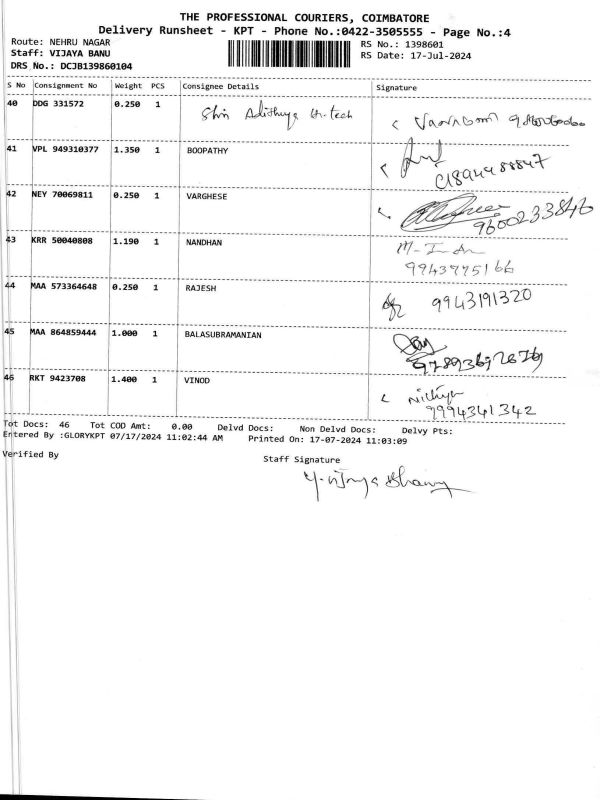 THE PROFESSIONAL COURIERS, COIMBATORE
Delivery Runsheet - KPT - Phone No.:0422-3505555 - Page No.:4
Route: NEHRU NAGAR
RS No.: 1398601
Staff: VIJAYA BANU
RS Date: 17-Jul-2024
DRS No.: DCJB139860104
S No Consignment No Weight PCS Consignee Details Signature
40 DDG 331572 0.250 1 Shri Adithya Hi-tech
41 VPL 949310377 1.350 1 BOOPATHY
42 NEY 70069811 0.250 1 VARGHESE
9600233846
43 KRR 50040808 1.190 1 NANDHAN
9943975166
44 MAA 573364648 0.250 1 RAJESH
9943191320
45 MAA 864859444 1.000 1 BALASUBRAMANIAN
46 RKT 9423708 1.400 1 VINOD
Nithya
9994341342
Tot Docs: 46 Tot COD Amt: 0.00 Delvd Docs: Non Delvd Docs: Delvy Pts:
Entered By :GLORYKPT 07/17/2024 11:02:44 AM Printed On: 17-07-2024 11:03:09
Verified By
Staff Signature